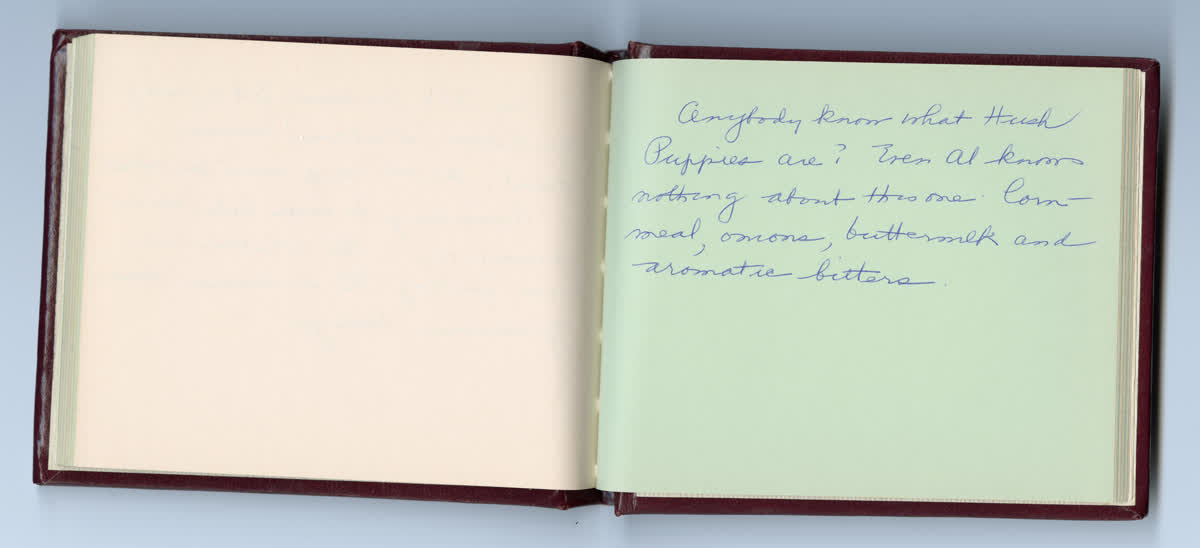 Anybody know what Hush
Puppies are? Even Al knows
nothing about this one. Corn-
meal, onions, buttermilk and
aromatic bitters.